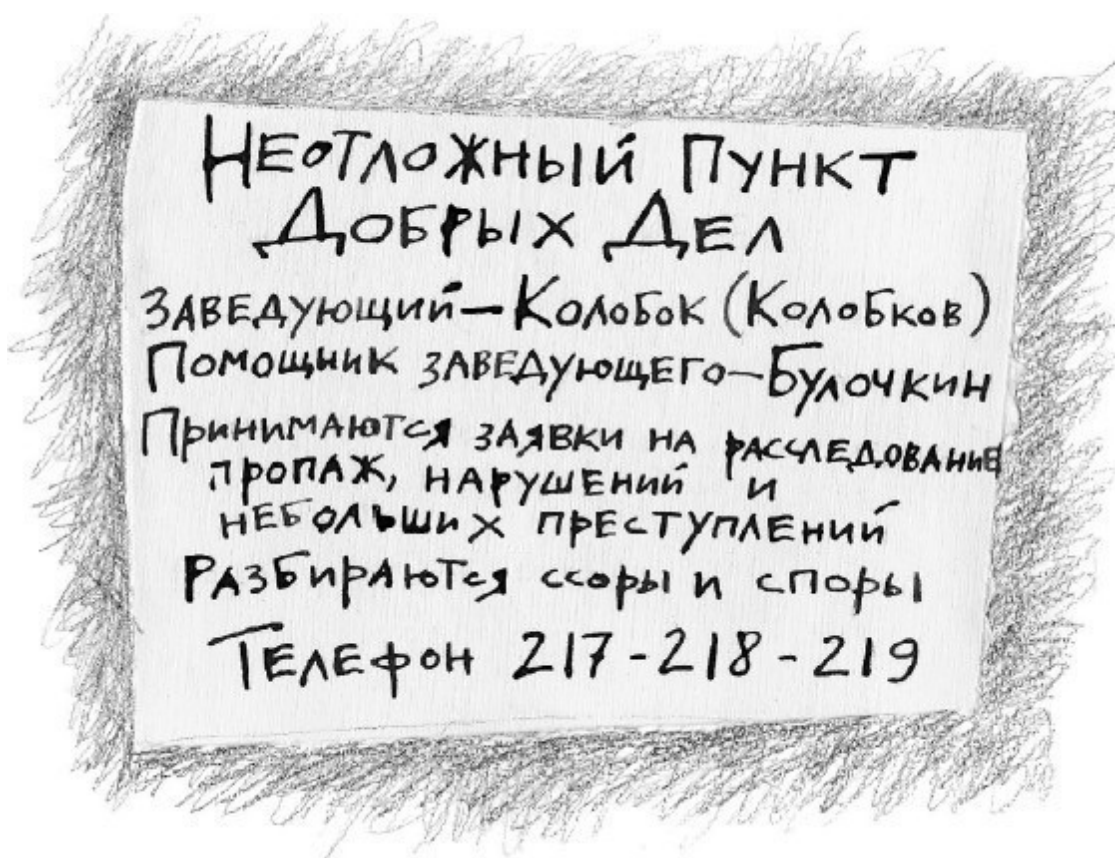 Неотложный Пункт
Добрых Дел
Заведующий – Колобок (Колобков)
Помощник заведующего – Булочкин
Принимаются заявки на расследование
пропаж, нарушений и
небольших преступлений
Разбираются ссоры и споры
Телефон 217-218-219